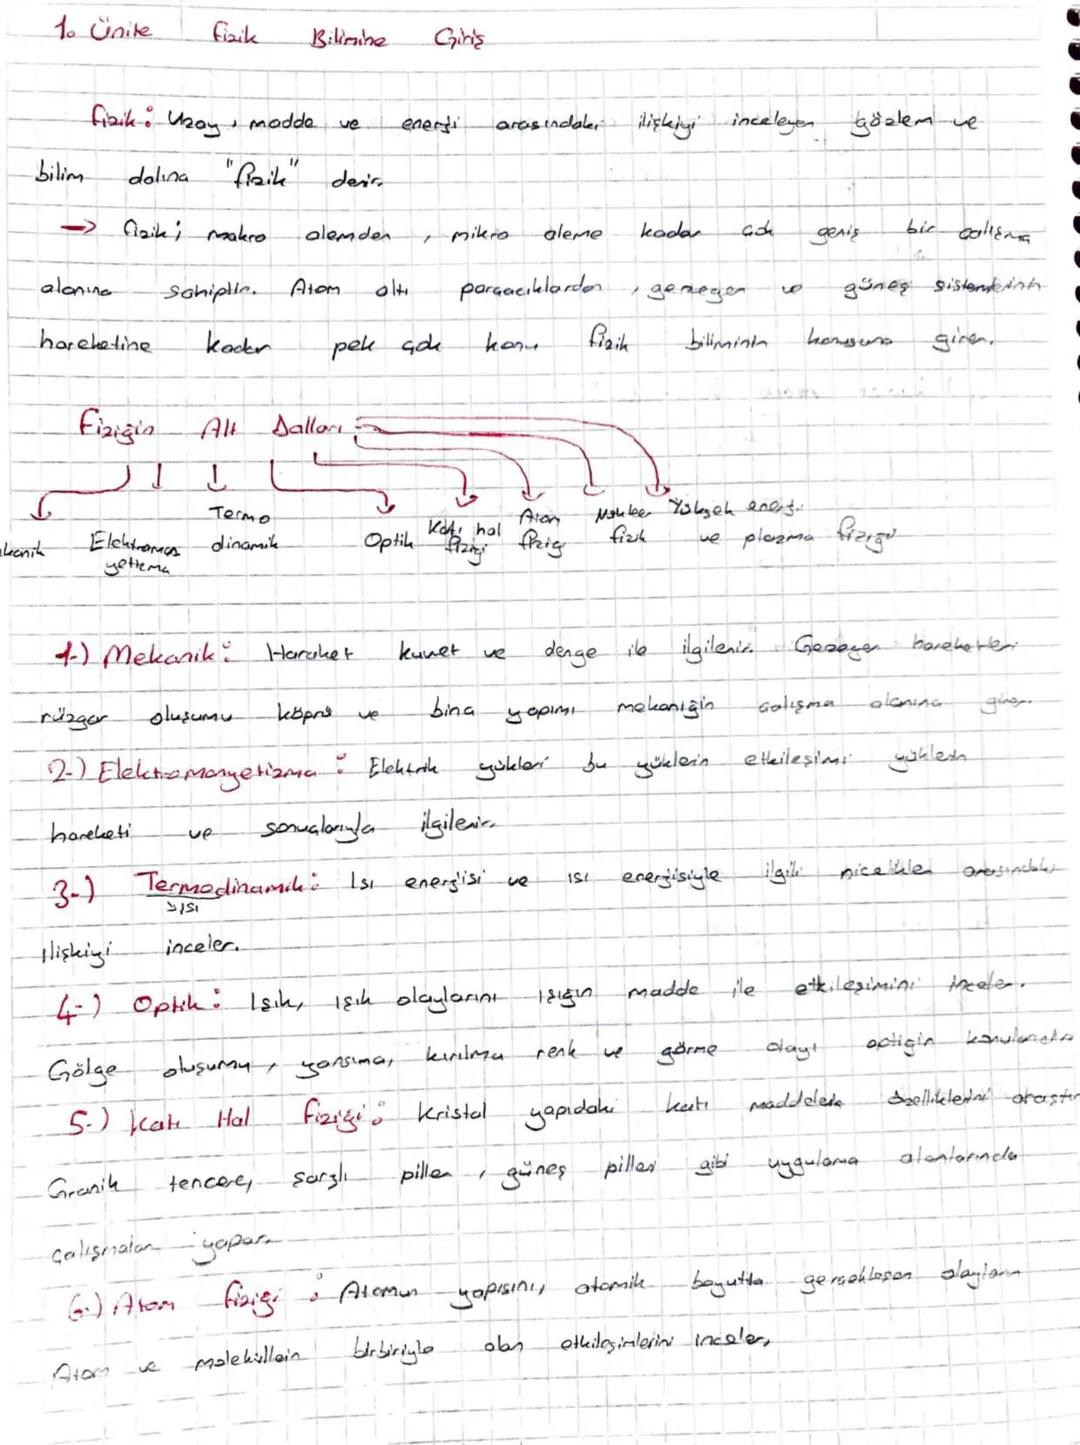 1. Ünite Fizik Bilimine Giriş
Fizik: Uzay, madde ve enerji arasındaki ilişkiyi inceleyen gözlem ve
bilim dalına "fizik" denir.
→ Fizik; makro alemden, mikro aleme kadar çok geniş bir çalışma
alanına sahiptir. Atom altı parçacıklardan, gezegen ve güneş sistemlerinin
hareketine kadar pek çok konu fizik biliminin konusuna girer.
Fiziğin Alt Dalları
Termo Atom Nükleer Yüksek enerji
ekanik Elektroman dinamik Optik Katı hal fiziği fiziği fizik ve plazma fiziği
yetizma
1-) Mekanik: Hareket kuvvet ve denge ile ilgilenir. Gezegen hareketleri
rüzgar oluşumu köprü ve bina yapımı mekaniğin çalışma alanına girer.
2-) Elektromanyetizma: Elektrik yükleri bu yüklerin etkileşimi yüklerin
hareketi ve sonuçlarıyla ilgilenir.
3-) Termodinamik: Isı enerjisi ve ısı enerjisiyle ilgili nicelikler arasındaki
→ısı
ilişkiyi inceler.
4-) Optik: Işık, ışık olaylarını ışığın madde ile etkileşimini inceler.
Gölge oluşumu, yansıma, kırılma renk ve görme olayı optiğin konularıdır
5-) Katı Hal Fiziği: Kristal yapıdaki katı maddelerin özelliklerini araştır
Granik tencere, şarjlı piller, güneş pilleri gibi uygulama alanlarında
çalışmalar yapar.
6-) Atom fiziği: Atomun yapısını, atomik boyutta gerçekleşen olayların
Atom ve moleküllerin birbiriyle olan etkileşimlerini inceler,